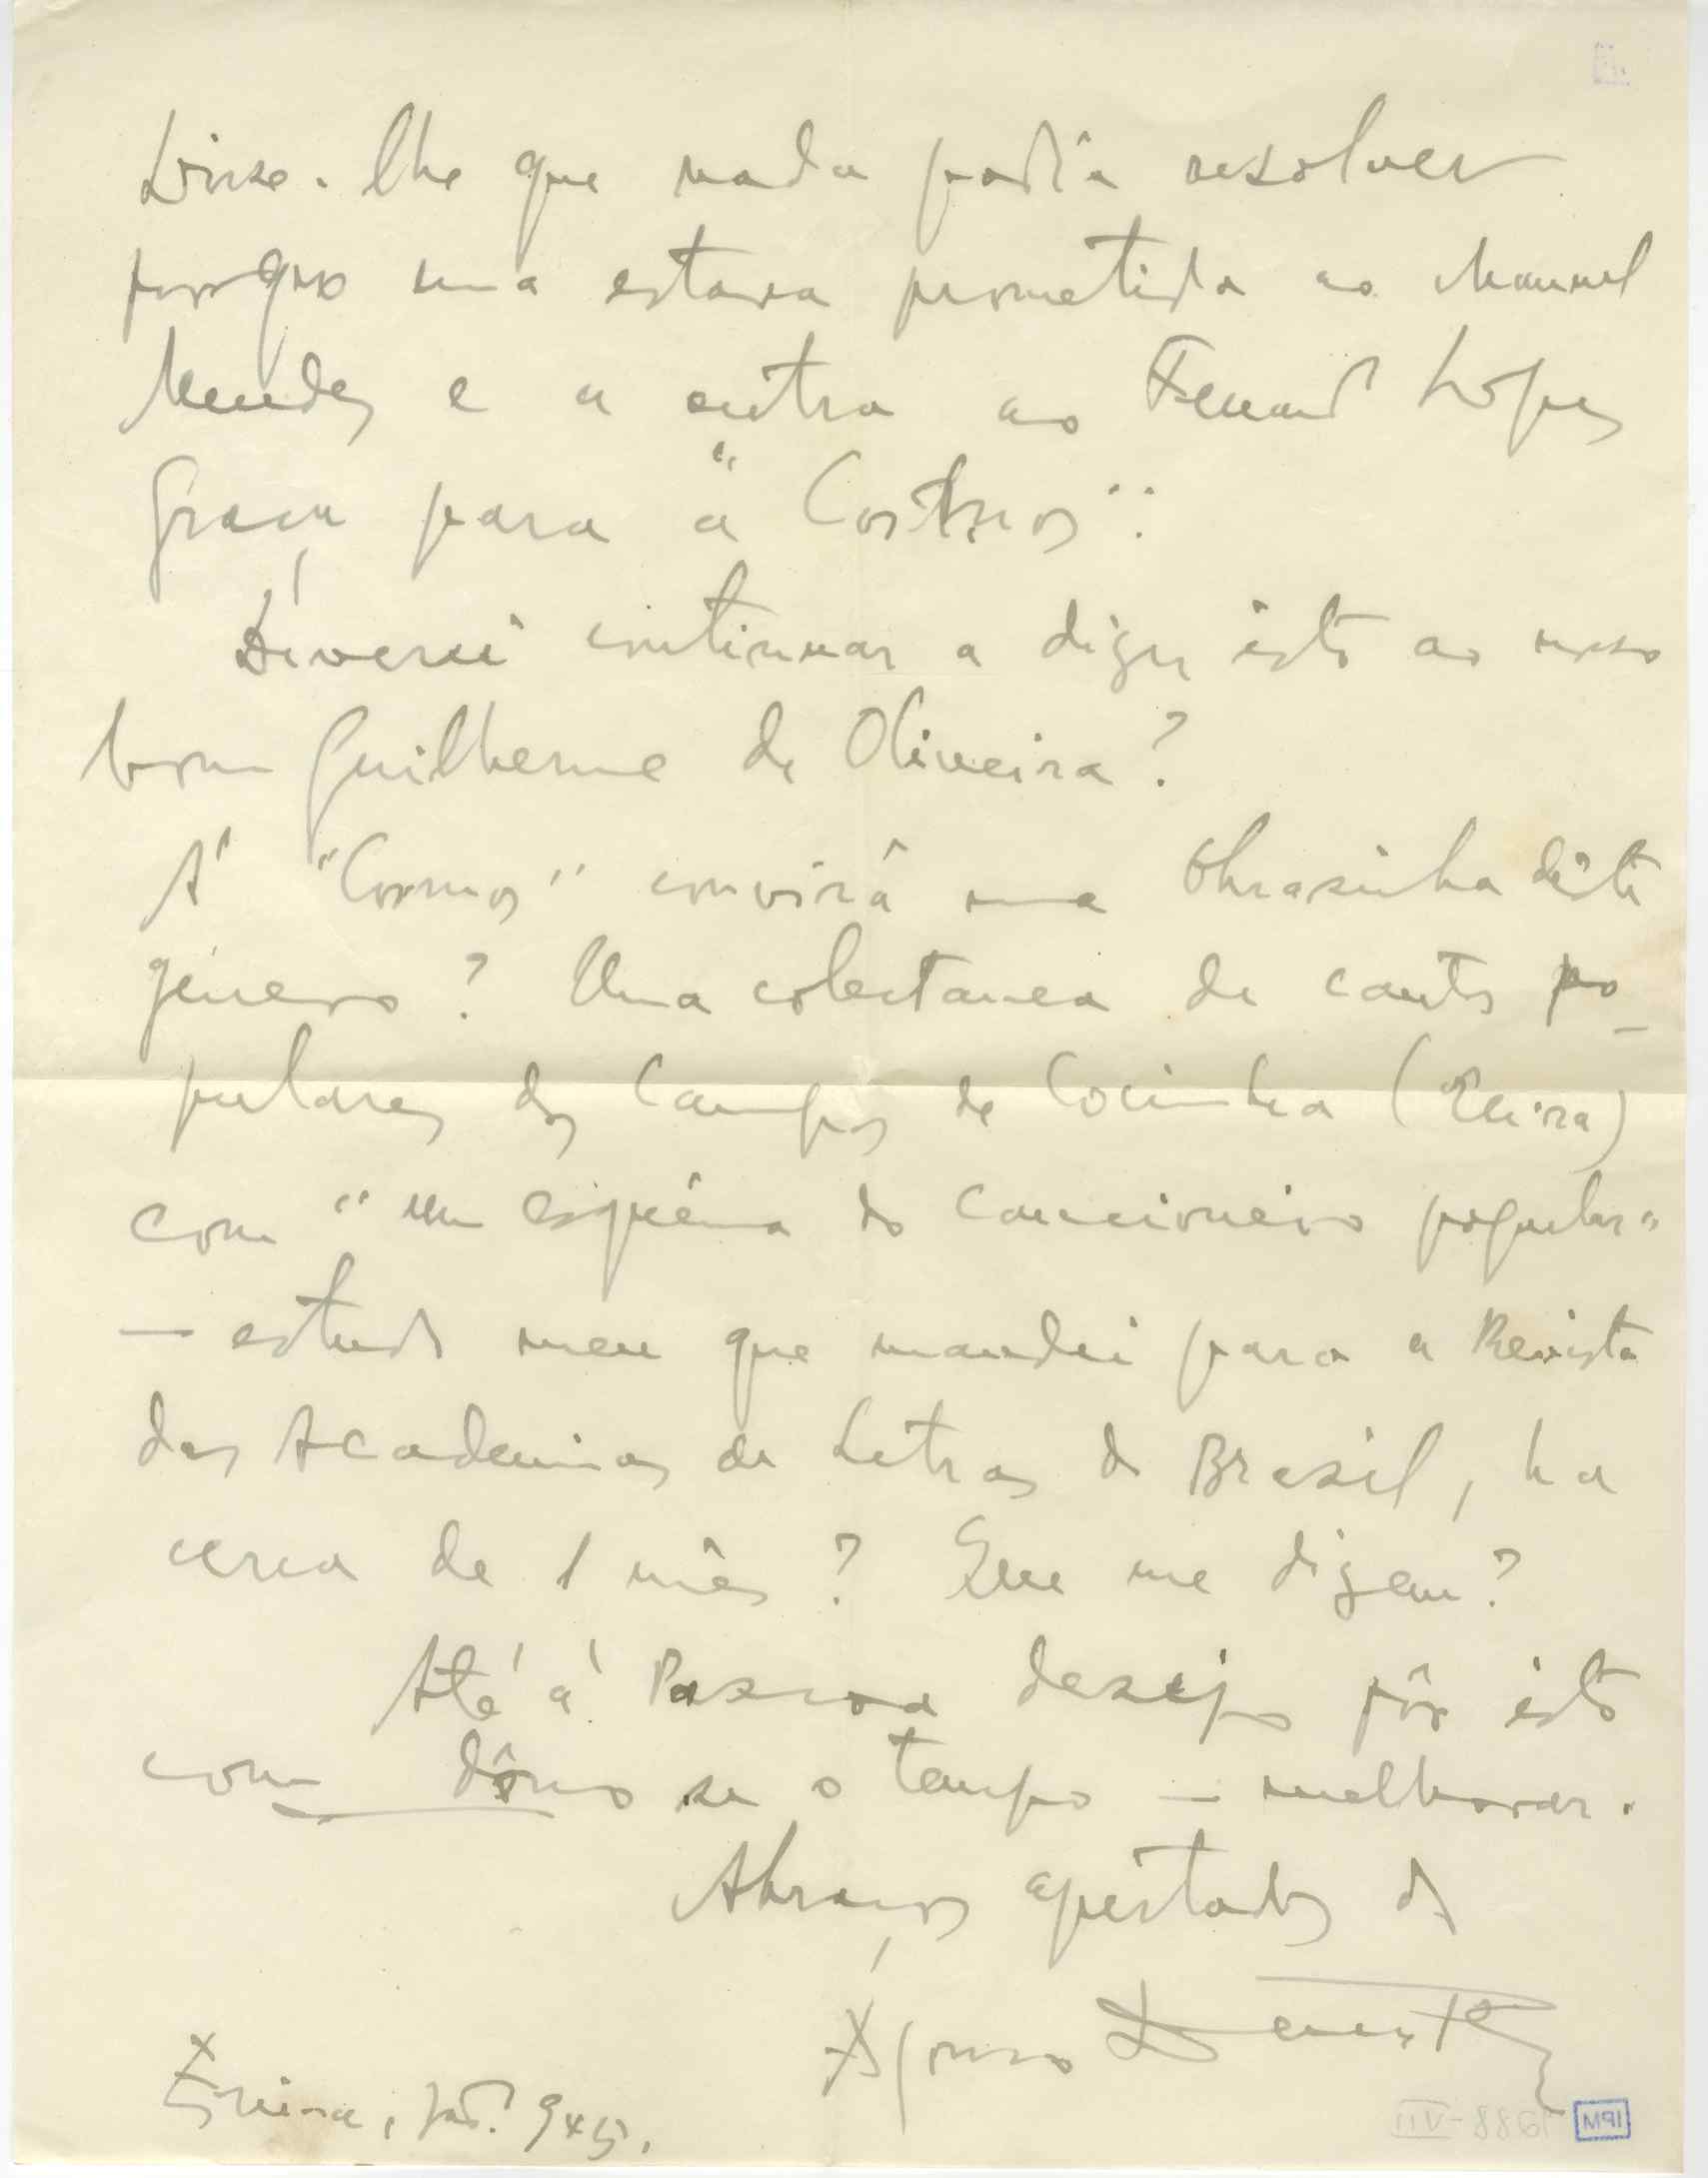 Disse-lhe que nada podia resolver
porque uma estava prometida ao Manuel
Mendes e a outra ao Fernando Lopes
Graça para a "Cosmos".
Deverei continuar a dizer isto ao nosso
bom Guilherme de Oliveira?
Á "Cosmos" convirá uma obrasinha dêste
género? Uma colectanea de cantos po-
pulares dos Campos de Coimbra (Ereira)
com "um esquêma do Cancioneiro popular"
— estudo meu que mandei para a Revista
das Academias de Letras do Brasil, ha
cerca de 1 mês? Que me dizem?
Até á Pascoa desejo pôr isto
como dono se o tempo — melhorar.
Abraços apertados do
Afonso Duarte
Ereira, 945.
IPM